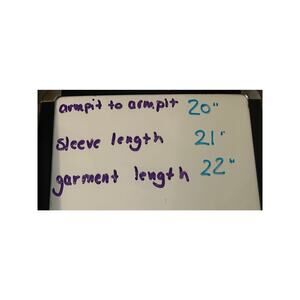 armpit to armpit 20"
sleeve length 21"
garment length 22"